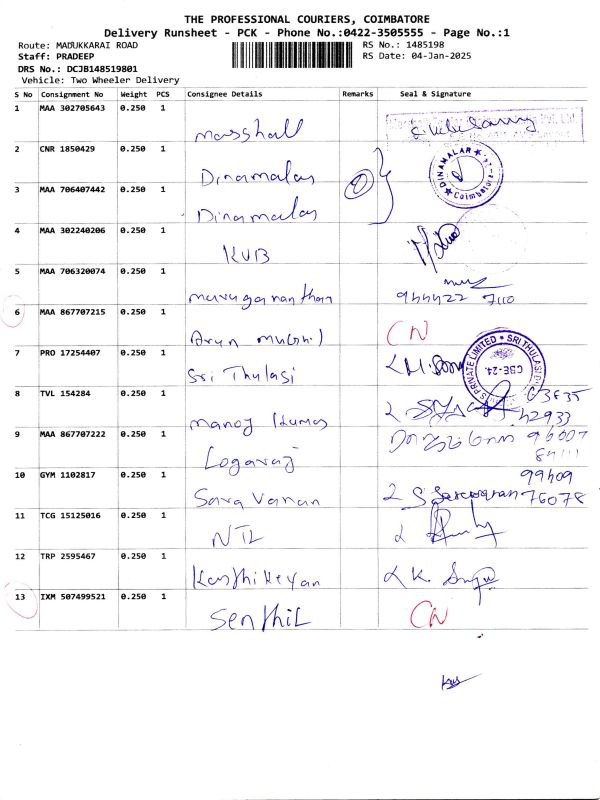 THE PROFESSIONAL COURIERS, COIMBATORE
Delivery Runsheet - PCK - Phone No.:0422-3505555 - Page No.:1
Route: MADUKKARAI ROAD RS No.: 1485198
Staff: PRADEEP RS Date: 04-Jan-2025
DRS No.: DCJB148519801
Vehicle: Two Wheeler Delivery
S No Consignment No Weight PCS Consignee Details Remarks Seal & Signature
1 MAA 302705643 0.250 1
Masshall
2 CNR 1850429 0.250 1 DINAMALAR
Dinamalar Coimbatore
3 MAA 706407442 0.250 1
Dinamalar
4 MAA 302240206 0.250 1
KVB
5 MAA 706320074 0.250 1
murugananthan 944422 7110
6 MAA 867707215 0.250 1
Arun CN
7 PRO 17254407 0.250 1 PRIVATE LIMITED SRI THULASI
Sri Thulasi CBE-24.
8 TVL 154284 0.250 1 63835
manoj kumar 42933
9 MAA 867707222 0.250 1 96007
Logaraj
10 GYM 1102817 0.250 1 99409
Saravanan 76078
11 TCG 15125016 0.250 1
NTL
12 TRP 2595467 0.250 1
Karthikeyan K.
13 IXM 507499521 0.250 1
Senthil CN